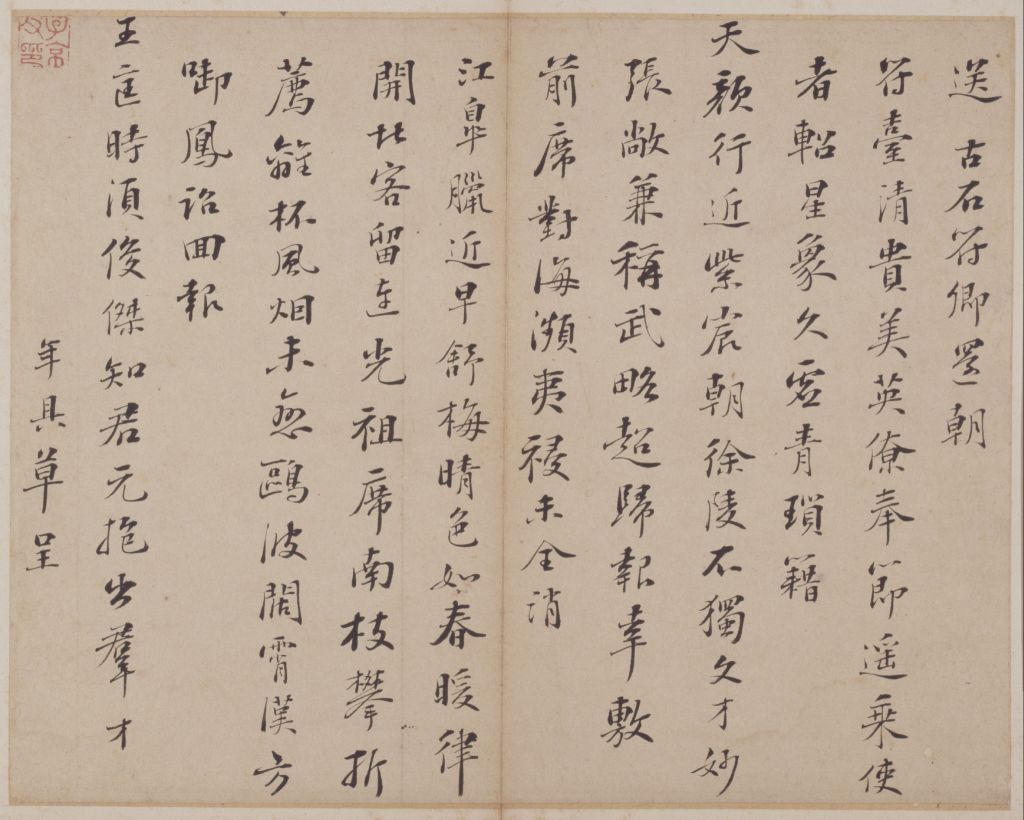 送 古石符卿還朝
符臺清貴美英僚奉節遥乗使
者軺星象久虛青瑣籍
天顔行近紫宸朝徐陵不獨文才妙
張敞兼稱武略超歸報幸敷
前席對海瀕夷祲未全消
江皐臘近早舒梅晴色如春暖律
開北客留連光祖席南枝攀折
薦離杯風烟未鷗波闊霄漢方
啣鳳詔回報
主匡時須俊傑知君元抱出羣才
年具草呈
子京父印